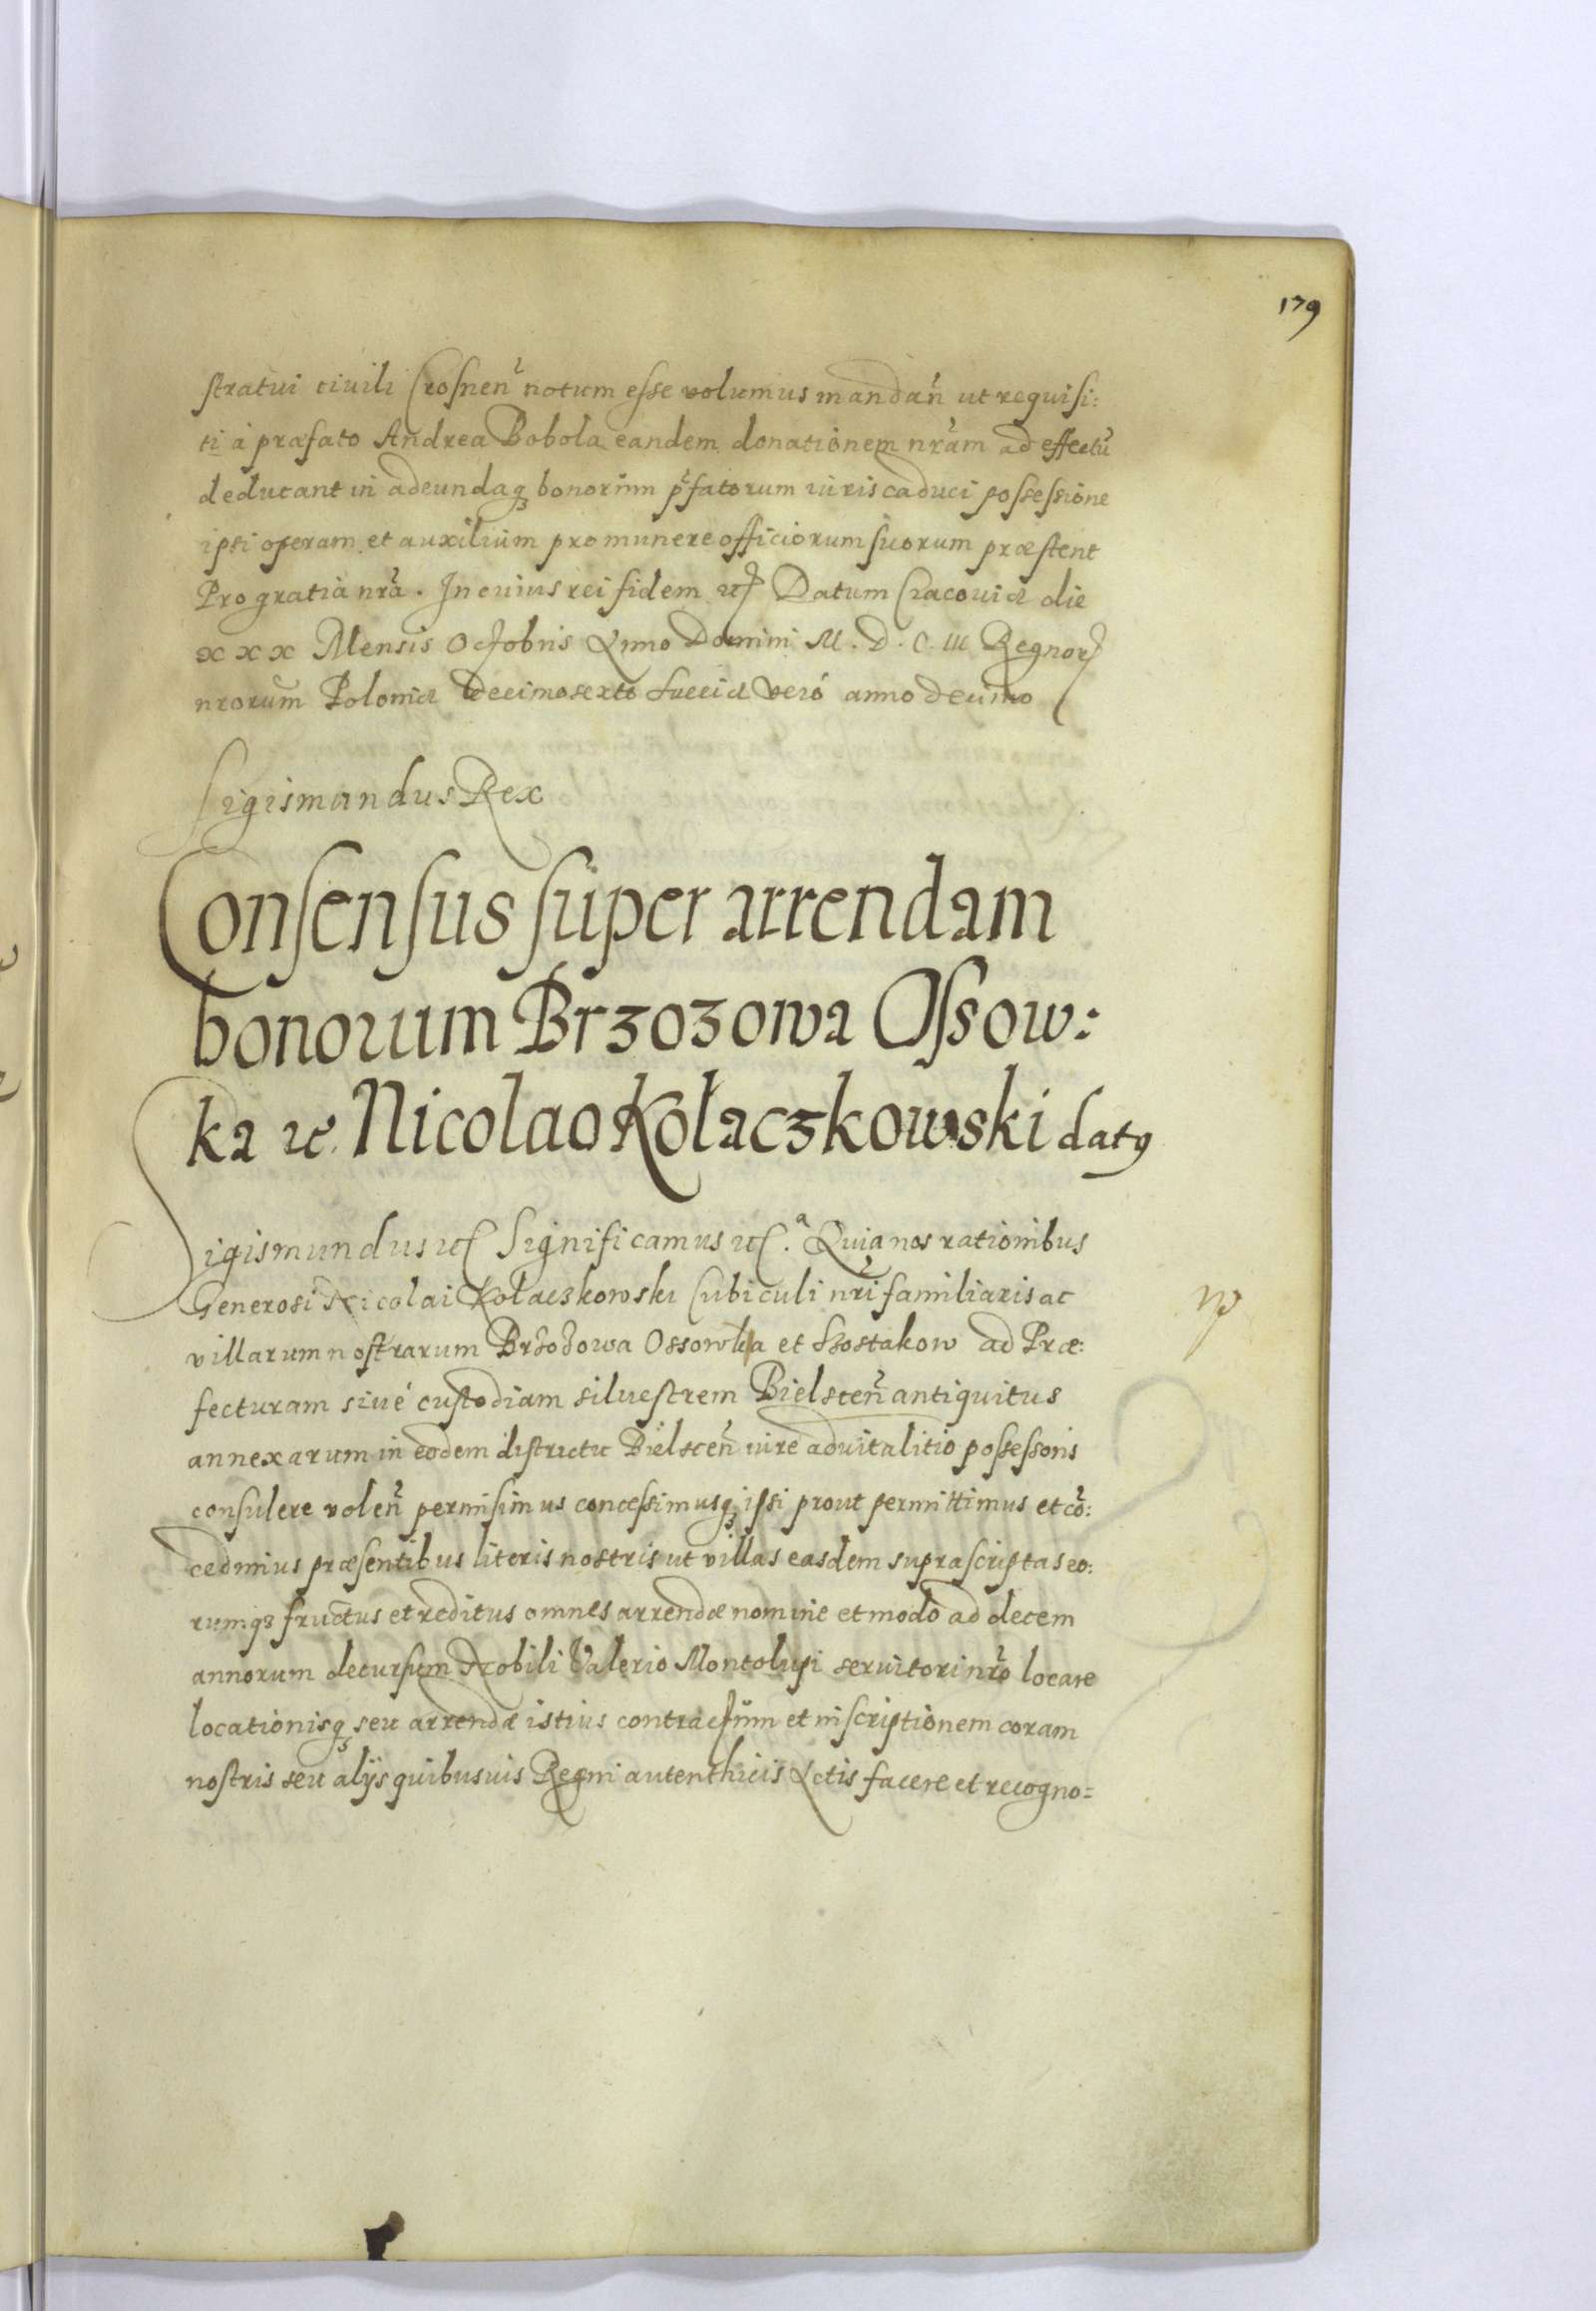 179
stratui ciuili Crosnen̄ notum esse volumus mandan̄ ut requisi:
ti à præfato Andrea Bobola eandem donationem nr̄am ad effectū
deducant in adeundaq₃ bonorum p̄fatorum iuris caduci possessione
ipsi operam et auxilium pro munere officiorum suorum præstent
Pro gratia nr̄a. In cuius rei fidem etc Datum Cracouiæ die
xxx Mensis Octobris Anno Domini M. D. C. III Regnor
nrorum Poloniæ decimosexto Sueciæ veró anno decimo
Sigismundus Rex
Consensus super arrendam
bonorum Brzozowa Ossow:
ka etc. Nicolao Kołaczkowski datꝰ
Sigismundus etc Significamus etc.ᵃ Quia nos rationibus
Generosi Nicolai Kołaczkowski Cubiculi nr̄i familiaris ac
villarum nostrarum Brzozowa Ossowka et Szostakow ad Præ:
fecturam siué custodiam siluestrem Bielscen̄ antiquitus
annexarum in eodem districtu Bielscen̄ iure aduitalitio possessoris
consulere volen̄ permisimus concessimusq₃ ipsi prout permittimus et cō:
cedimus præsentibus literis nostris ut villas easdem suprascriptas eo:
rumq₃ fructus et reditus omnes arrendæ nomine et modo ad decem
annorum decursum Nobili Valerio Montolupi seruitori nr̄o locare
locationisq₃ seu arrendæ istius contractum et inscriptionem coram
nostris seu alijs quibusuis Regni autenthicis Actis facere et recogno=